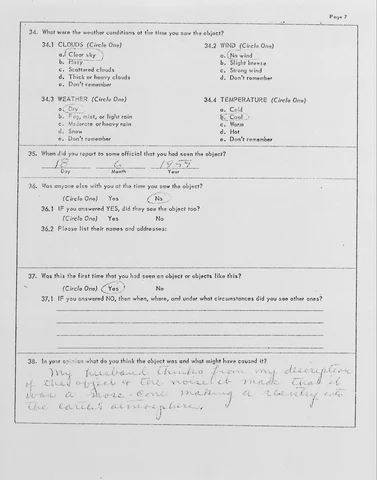 Page 7
34. What were the weather conditions at the time you saw the object?
34.1 CLOUDS (Circle One)
a. Clear sky
b. Hazy
c. Scattered clouds
d. Thick or heavy clouds
e. Don't remember
34.2 WIND (Circle One)
a. No wind
b. Slight breeze
c. Strong wind
d. Don't remember
34.3 WEATHER (Circle One)
a. Dry
b. Fog, mist, or light rain
c. Moderate or heavy rain
d. Snow
e. Don't remember
34.4 TEMPERATURE (Circle One)
a. Cold
b. Cool
c. Warm
d. Hot
e. Don't remember
35. When did you report to some official that you had seen the object?
18 6 1959
Day Month Year
36. Was anyone else with you at the time you saw the object?
(Circle One) Yes No
36.1 IF you answered YES, did they see the object too?
(Circle One) Yes No
36.2 Please list their names and addresses:
37. Was this the first time that you had seen an object or objects like this?
(Circle One) Yes No
37.1 IF you answered NO, then when, where, and under what circumstances did you see other ones?
38. In your opinion what do you think the object was and what might have caused it?
My husband thinks from my description
of the object & the noise it made that it
was a nose cone making a reentry into
the earth's atmosphere.